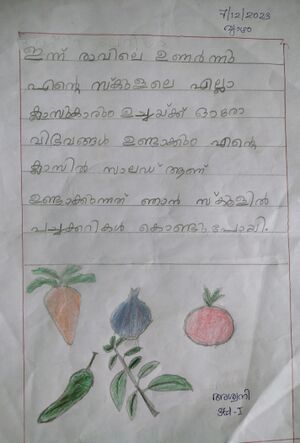 7/12/2023
വ്യാഴം
ഇന്ന് രാവിലെ ഉണർന്നു
എന്റെ സ്കൂളിലെ എല്ലാ
ക്ലാസുകാരും ഉച്ചയ്ക്ക് ഓരോ
വിഭവങ്ങൾ ഉണ്ടാക്കും എന്റെ
ക്ലാസിൽ സാലഡ് ആണ്
ഉണ്ടാക്കുന്നത് ഞാൻ സ്കൂളിൽ
പച്ചക്കറികൾ കൊണ്ടു പോയി.
അശ്വനി
Std-I